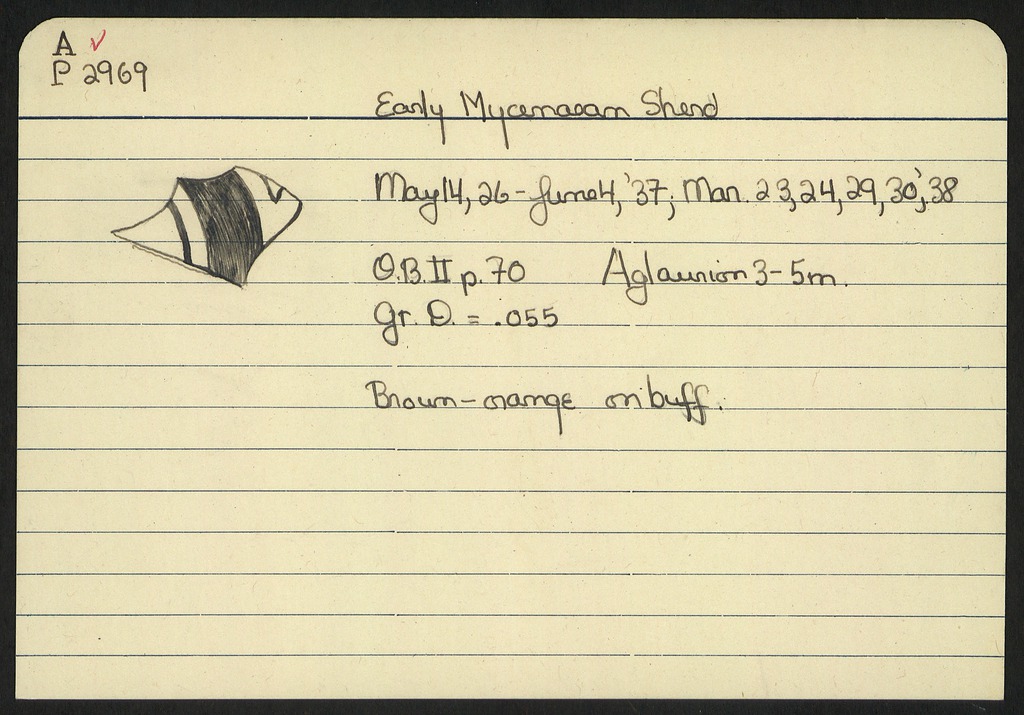 A ✓
P 2969
Early Mycenaean Sherd
May 14, 26 - June 4, '37; Mar. 23, 24, 29, 30, '38
O.B. II p. 70 Aglaurion 3-5m.
Gr. D. = .055
Brown-orange on buff.